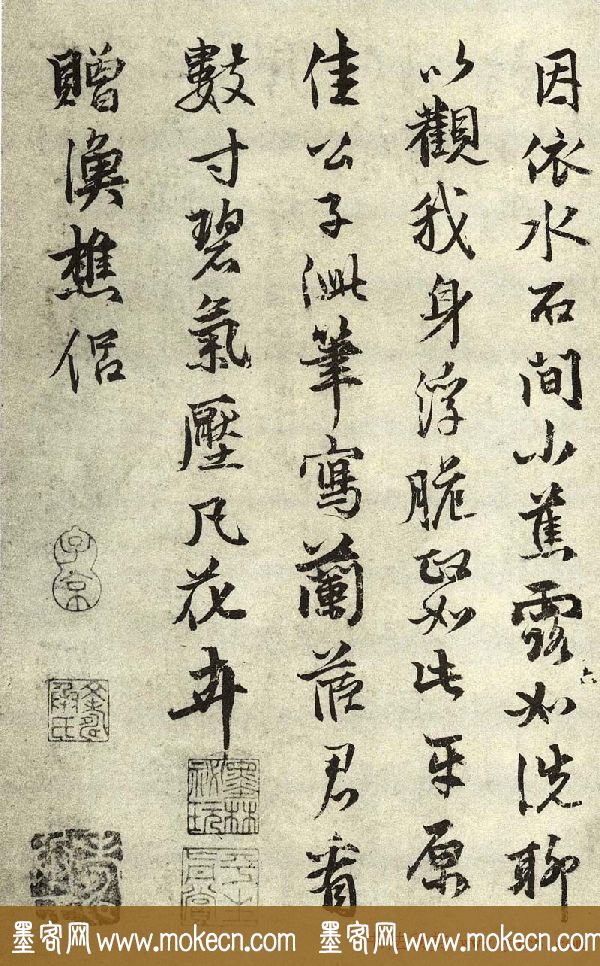 因依水石间小蕉露如洗聊
以觀我身浮脆政如此平原
佳公子泚筆寫蘭茝君看
數寸碧氣壓凡花卉
贈漁樵侣
子京
墨林祕玩
墨客网 www.mokecn.com 墨客网 www.mokecn.com